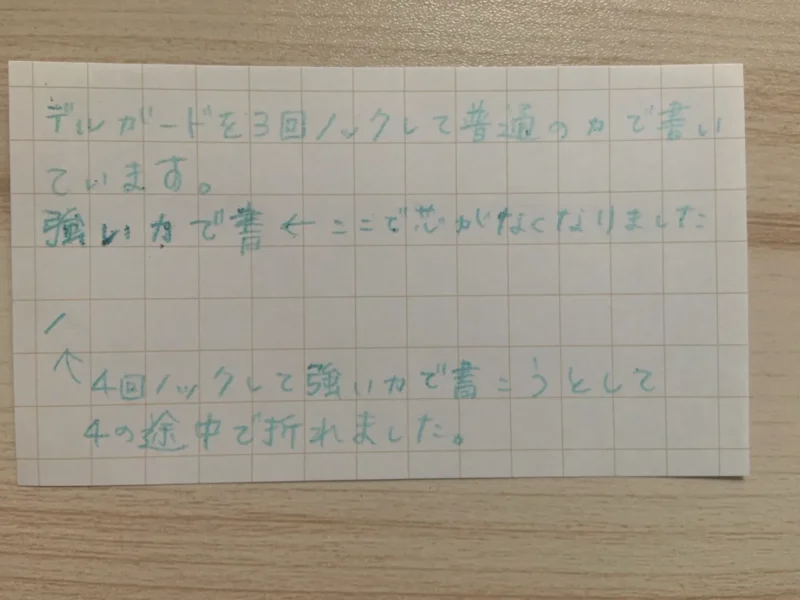 デルガードを3回ノックして普通の力で書い
ています。
強い力で書←ここで芯がなくなりました
↑4回ノックして強い力で書こうとして
4の途中で折れました。